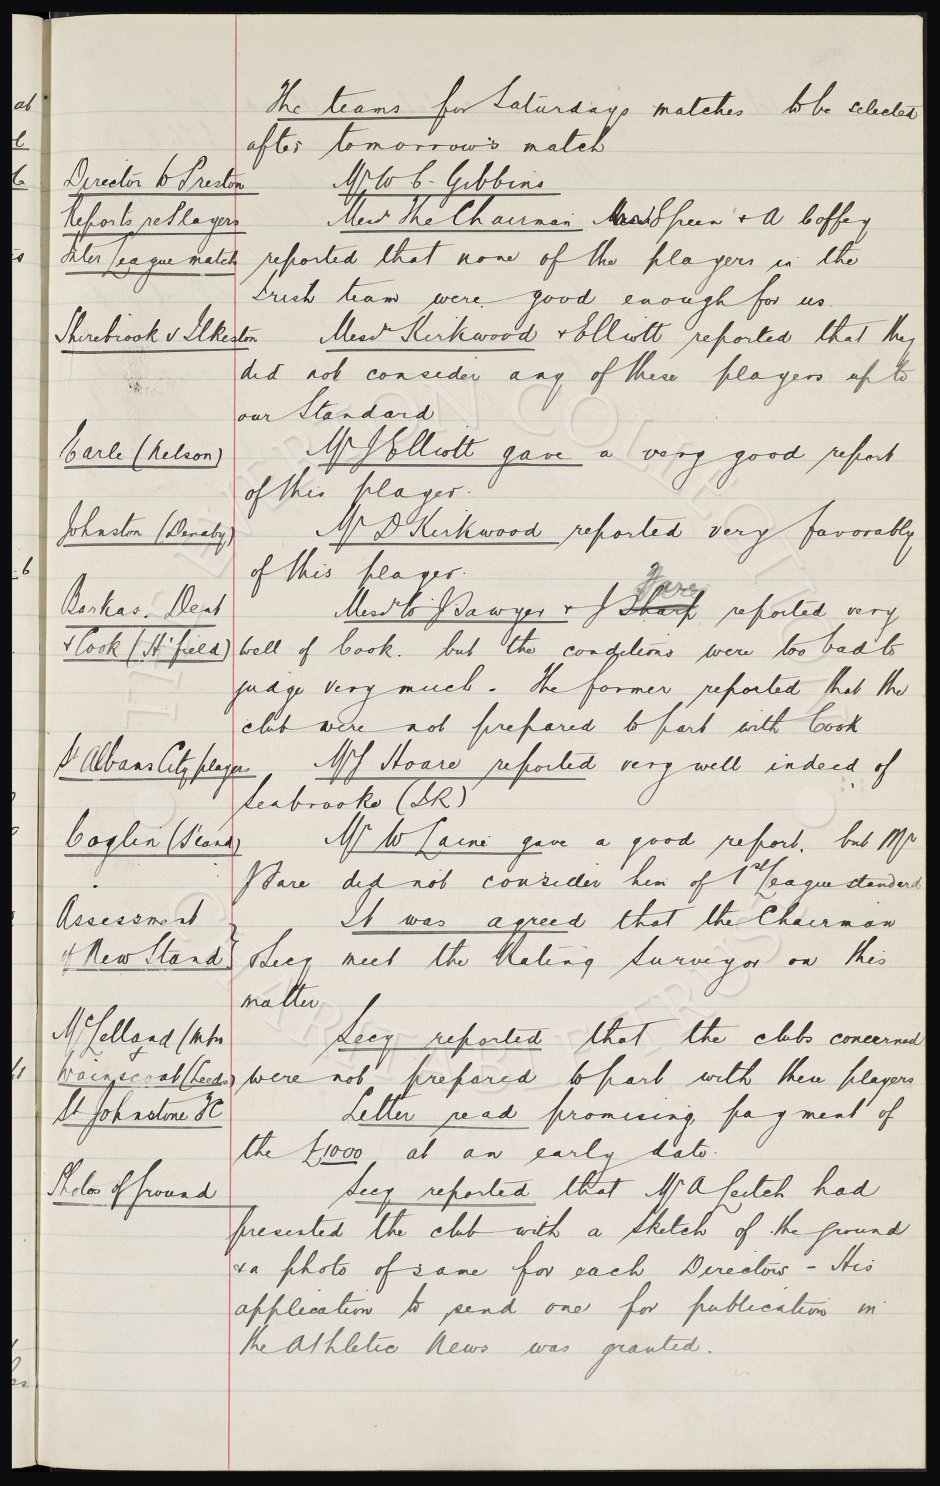 The teams for Saturdays matches to be selected
after tomorrow's match
Director to Preston Mr W C Gibbins
Reports re Players Messrs The Chairman Green + A Coffey
Inter League match reported that none of the players in the
Irish team were good enough for us
Shirebrook v Ilkeston Messrs Kirkwood + Elliott reported that they
did not consider any of these players up to
our Standard
Earle (Nelson) Mr J Elliott gave a very good report
of this player.
Johnston (Denaby) Mr D Kirkwood reported very favorably
of this player.
Barkas. Dent Messrs W J Sawyer + J Sharp Hoare reported very
+ Cook (H'field) well of Cook. but the conditions were too bad to
judge very much - The former reported that the
club were not prepared to part with Cook
St Albans City players Mr J Hoare reported very well indeed of
Seabrooke (IR)
Coglin (S'land) Mr W Laine gave a good report, but Mr
Bare did not consider him of 1st League standard
Assessment It was agreed that the Chairman
of New Stand + Secy meet the Rating Surveyor on this
matter
McLelland (Mbro Secy reported that the clubs concerned
+
Wainscoat (Leeds) were not prepared to part with these players
St Johnstone FC Letter read promising payment of
the £1000 at an early date.
Photos of Ground Secy reported that Mr A Leitch had
presented the club with a sketch of the ground
+ a photo of same for each Director - His
application to send one for publication in
the Athletic News was granted.
THE EVERTON COLLECTION